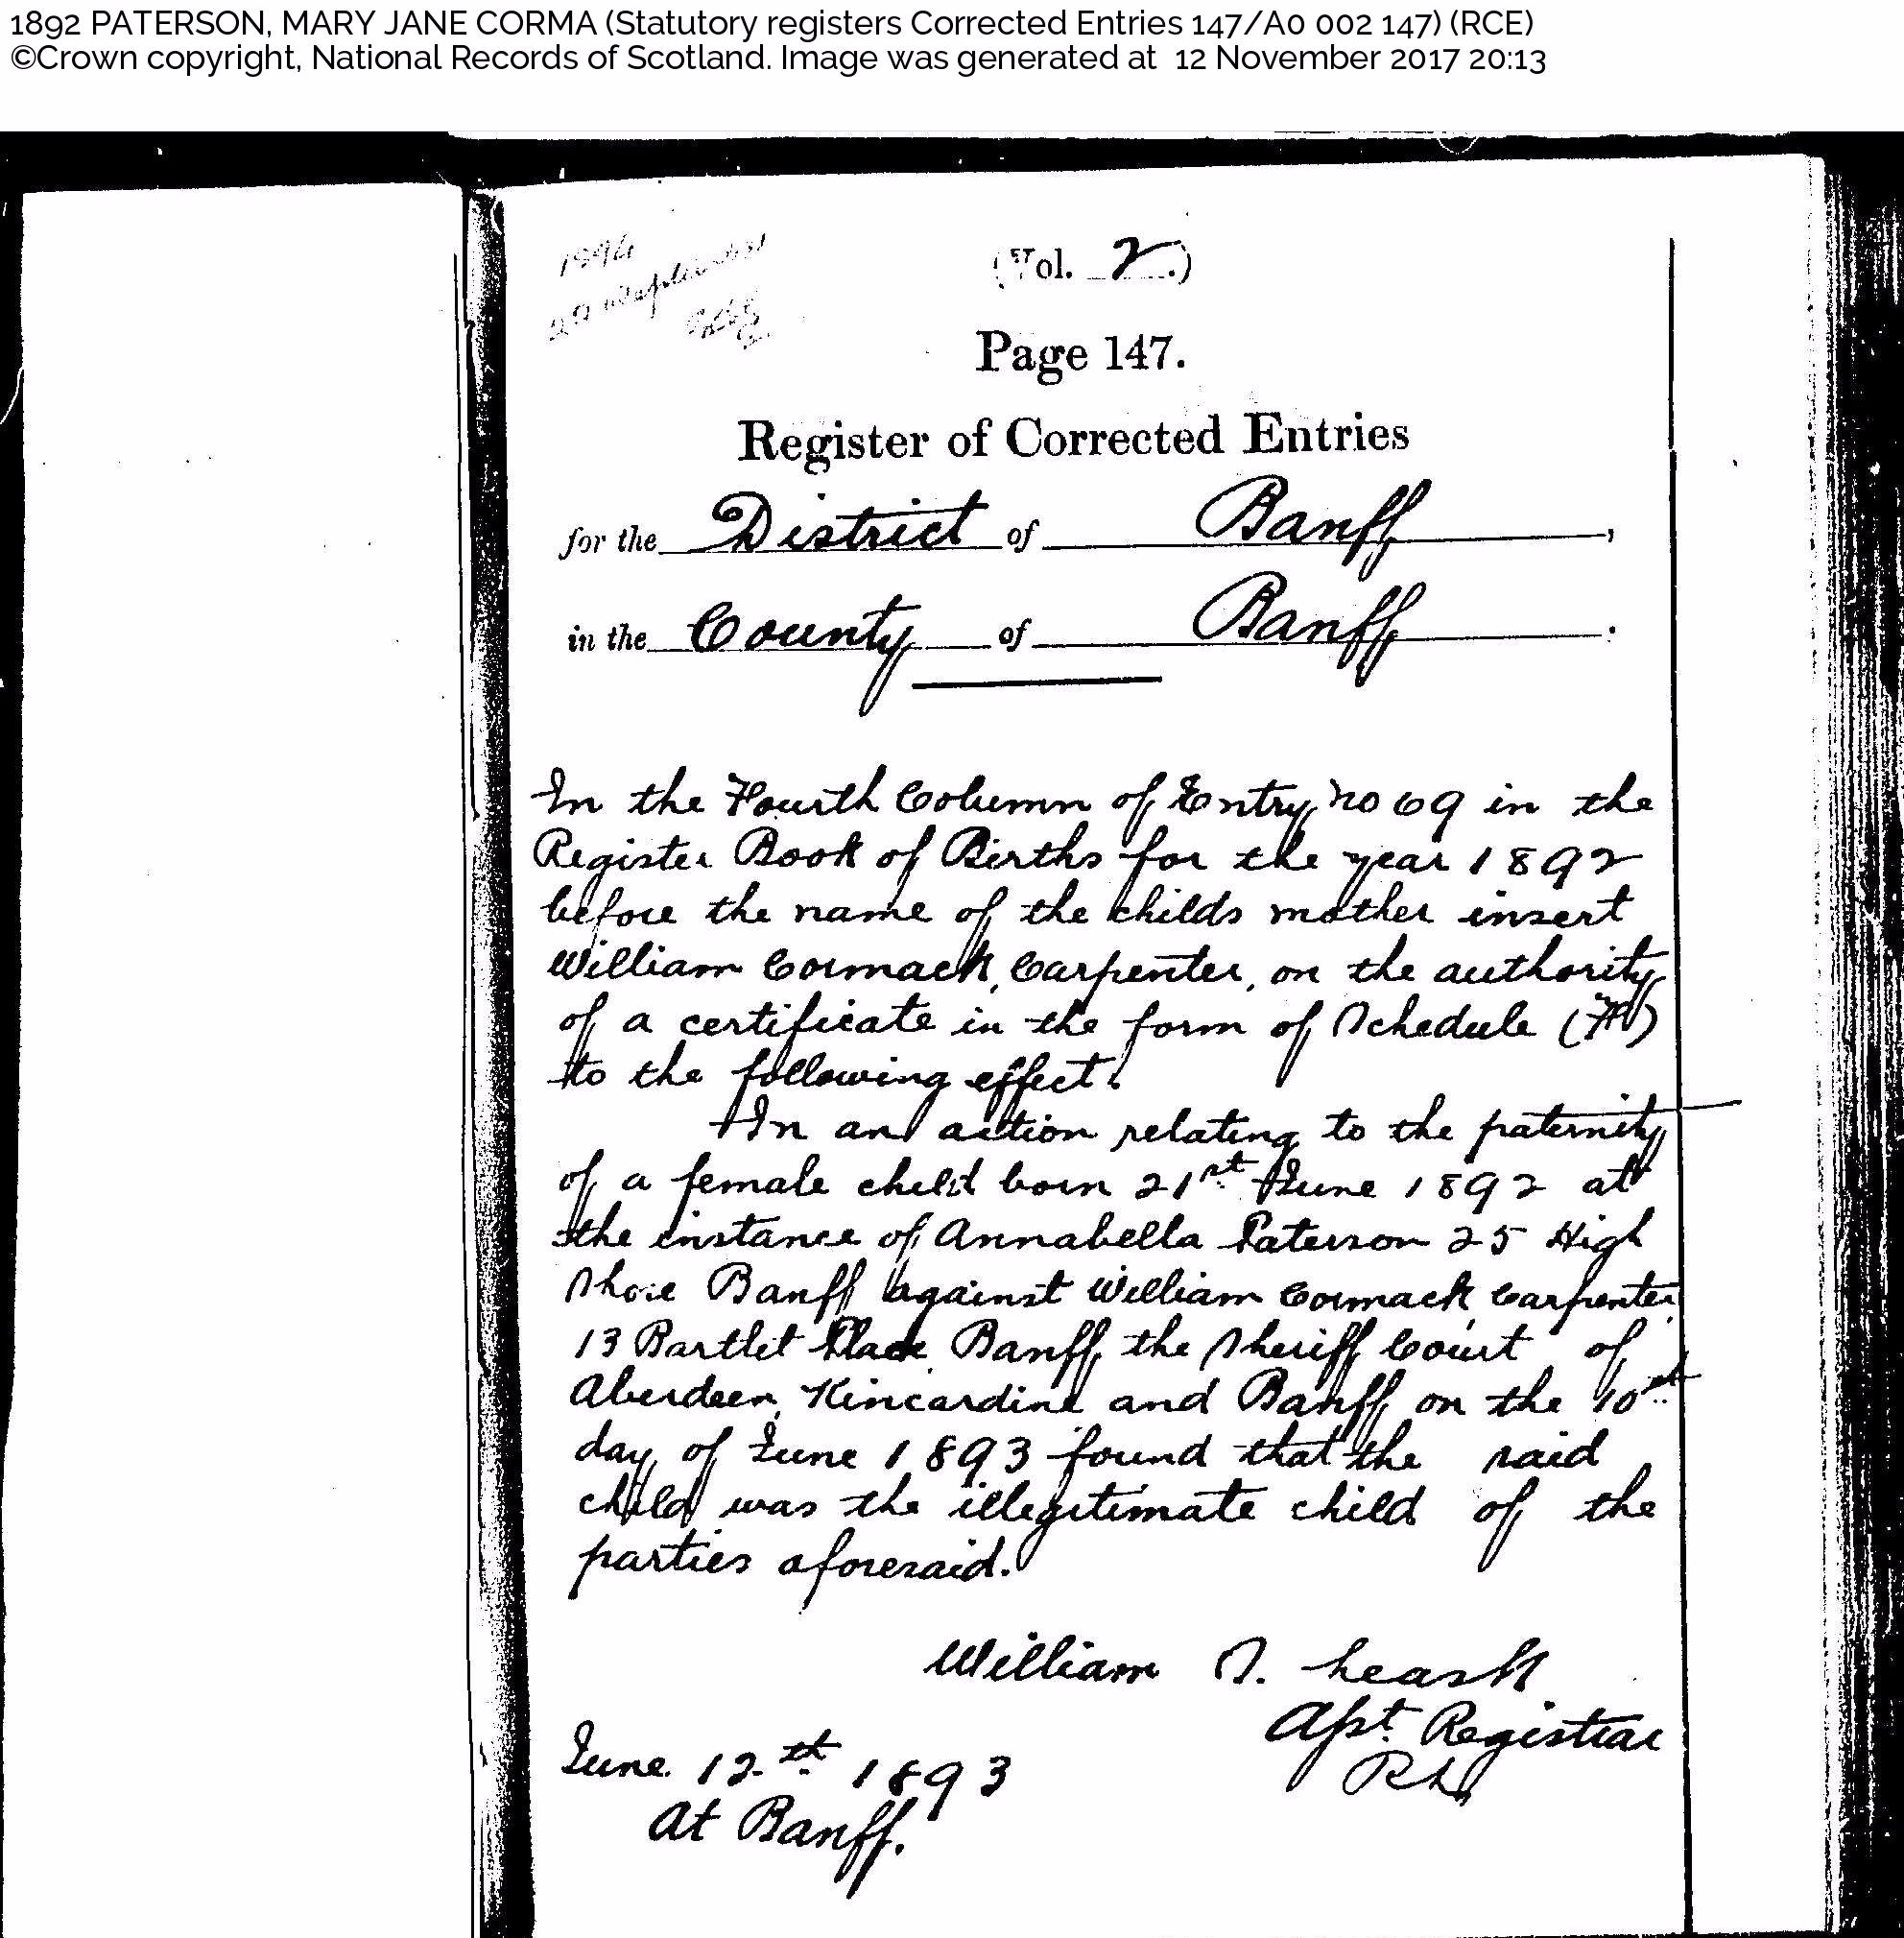 1892 PATERSON, MARY JANE CORMA (Statutory registers Corrected Entries 147/A0 002 147) (RCE)
©Crown copyright, National Records of Scotland. Image was generated at 12 November 2017 20:13
(Vol. 2.)
Page 147.
Register of Corrected Entries
for the District of Banff,
in the County of Banff.
In the Fourth Column of Entry no 69 in the
Register Book of Births for the year 1892
before the name of the childs mother insert
William Cormack, Carpenter, on the authority
of a certificate in the form of Schedule (F)
to the following effect.
In an action relating to the paternity
of a female child born 21st June 1892 at
the instance of Annabella Paterson 25 High
Shore Banff against William Cormack, Carpenter,
13 Bartlet Place, Banff, the Sheriff Court of
Aberdeen, Kincardine and Banff, on the 10th
day of June 1893 found that the said
child was the illegitimate child of the
parties aforesaid.
William S. Leask
Asst. Registrar
June 12th 1893
At Banff.